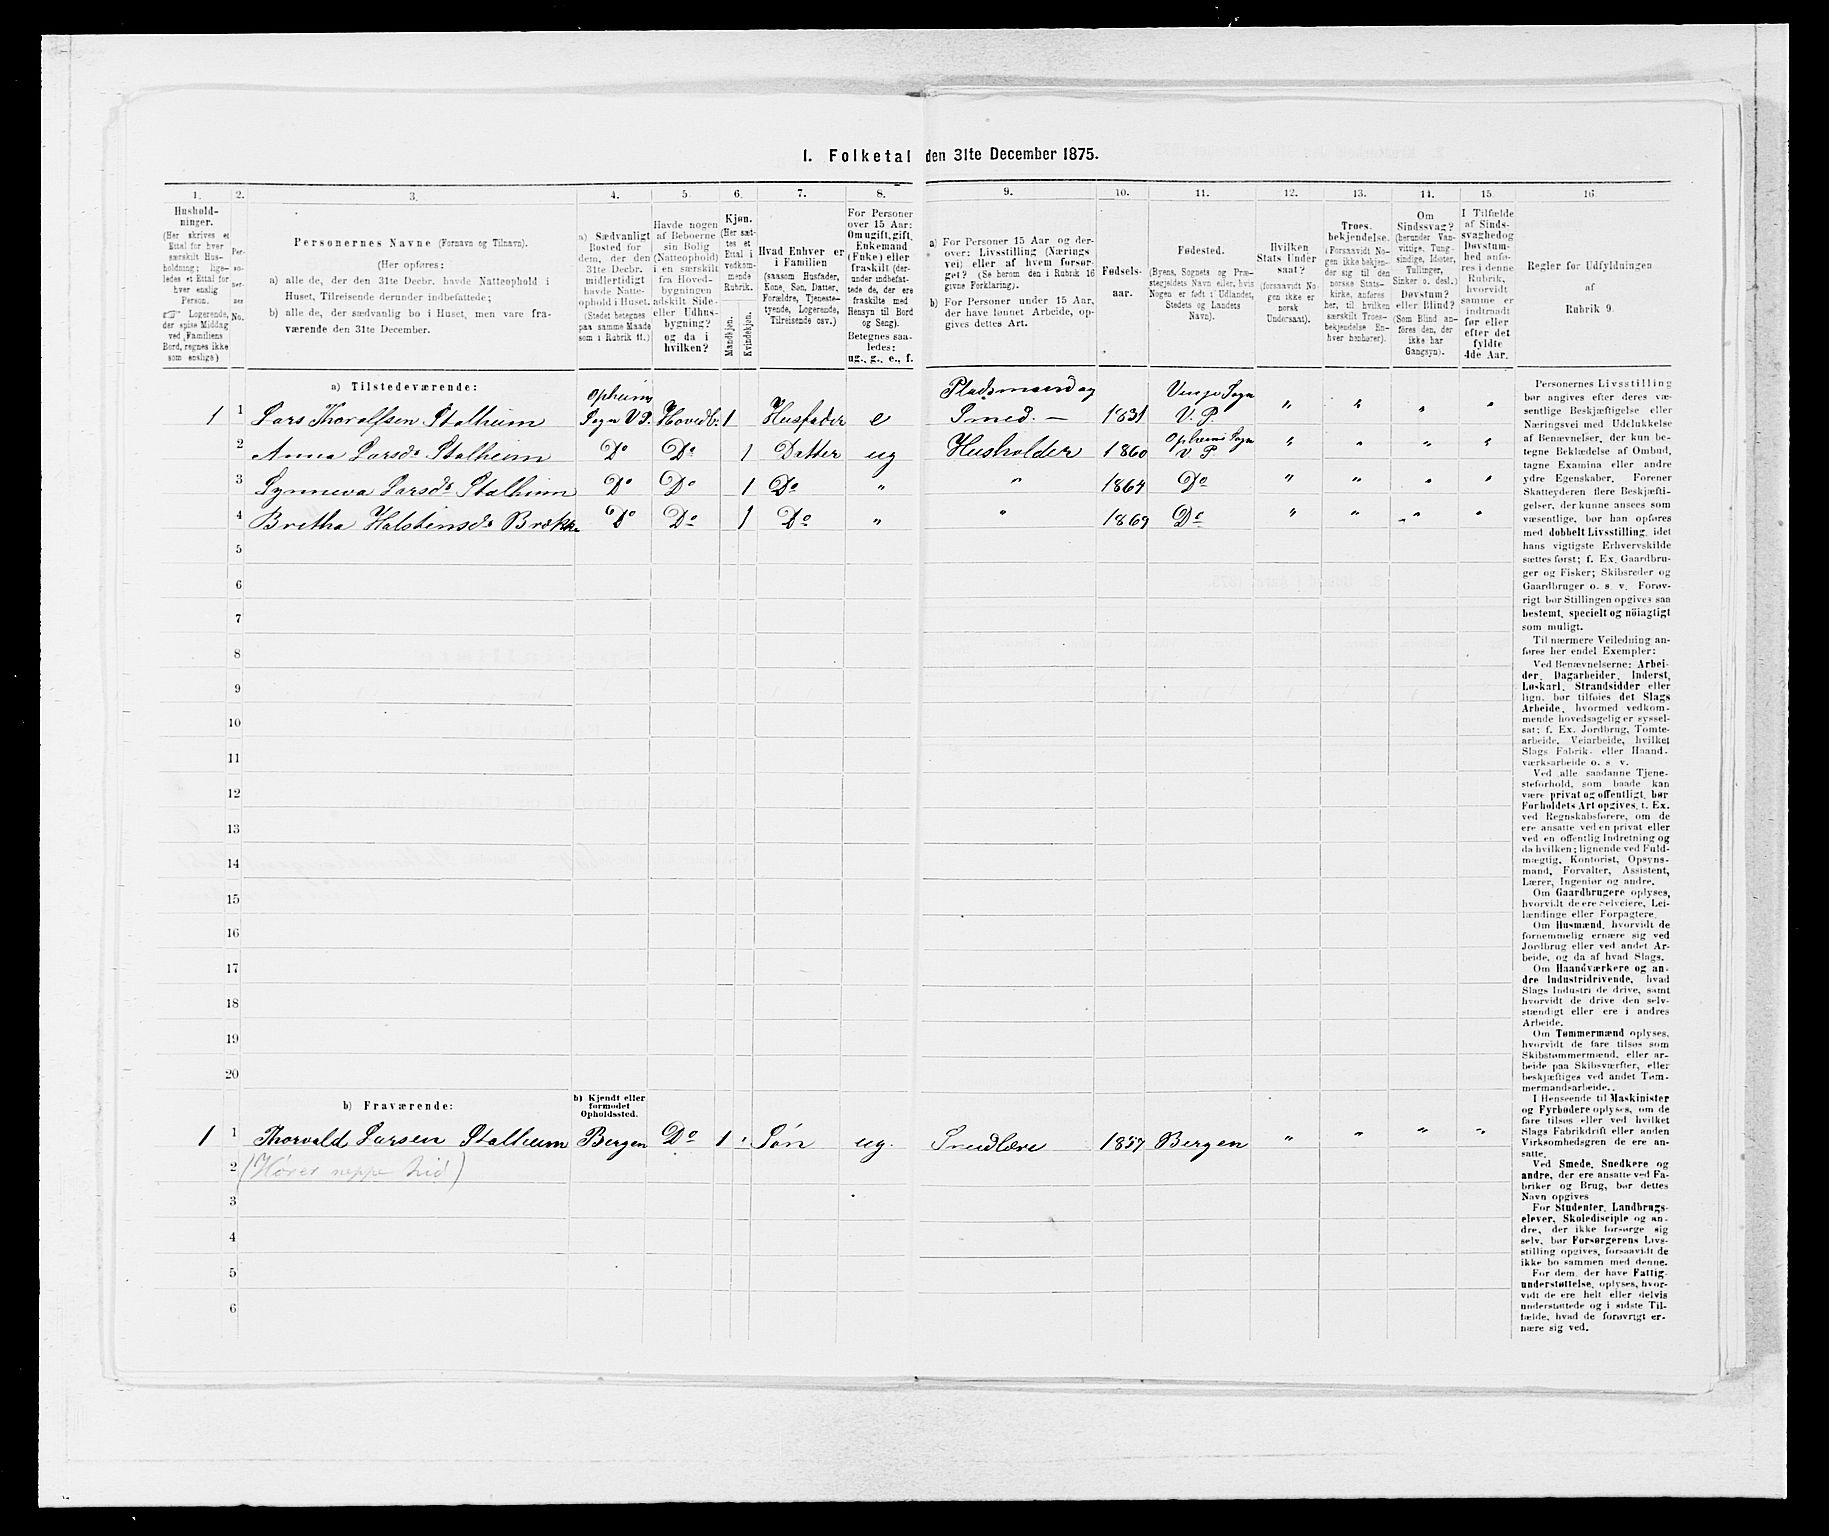 1. Folketal den 31te December 1875.
1. 2. 3. 4. 5. 6. 7. 8. 9. 10. 11. 12. 13. 14. 15. 16
Hushold-
ninger.
(Her skrives et
Ettal for hver
særskilt Hus-
holdning; lige-
ledes et Ettal for
hver enslig
Person.
☞ Logerende,
der spise Middag
ved Familiens
Bord, regnes ikke
som enslige)
Per-
so-
ner-
nes
No.
Personernes Navne (Fornavn og Tilnavn).
(Her opføres:
a) alle de, der den 31te Decbr. havde Natteophold i
Huset, Tilreisende derunder indbefattede;
b) alle de, der sædvanlig bo i Huset, men vare fra-
værende den 31te December.
a) Sædvanligt
Bosted for
dem, der den
31te Decbr.
midlertidigt
havde Natte-
ophold i Huset.
(Stedet betegnes
paa samme Maade
som i Rubrik 11.)
Havde nogen
af Beboerne
sin Bolig
(Natteophold)
i en særskilt
fra Hoved-
bygningen
adskilt Side-
eller Udhus-
bygning?
og da i
hvilken?
Kjøn.
(Her sæt-
tes et
Ettal i
vedkom-
mende
Rubrik.
Mandkjøn.
Kvindekjøn.
Hvad Enhver er
i Familien
(saasom Husfader,
Kone, Søn, Datter,
Forældre, Tjeneste-
tyende, Logerende,
Tilreisende osv.)
For Personer
over 15 Aar:
Om ugift, gift,
Enkemand
(Enke) eller
fraskilt (der-
under indbefat-
tede de, der ere
fraskilte med
Hensyn til Bord
og Seng).
Betegnes saa-
ledes:
ug., g., e., f.
a) For Personer 15 Aar og der-
over: Livsstilling (Nærings
vei) eller af hvem forsør-
get? (Se herom den i Rubrik 16
givne Forklaring).
b) For Personer under 15 Aar,
der have lønnet Arbeide, op-
gives dettes Art.
Fødsels-
aar.
Fødested.
(Byens, Sognets og Præ-
stegjeldets Navn eller, hvis
Nogen er født i Udlandet,
Stedets og Landets
Navn).
Hvilken
Stats Under
saat?
(forsaavidt No-
gen ikke er
norsk
Undersaat).
Troes-
bekjendelse.
(Forsaavidt No-
gen ikke bekjen-
der sig til den
norske Stats-
kirke, anføres
her, til hvilken
særskilt Troes-
bekjendelse En-
hver henhører).
Om
Sindssvag?
(herunder Van-
vittige, Tung-
sindige, Idioter,
Tullinger,
Sinker o. desl.)
Døvstum?
eller Blind?
(Som Blind an-
føres den, der
ikke har
Gangsyn).
I Tilfælde
af Sinds-
svaghed og
Døvstum-
hed anfø-
res i denne
Rubrik,
hvorvidt
samme er
indtraadt
før eller
efter det
fyldte
4de Aar.
Regler for Udfyldningen
af
Rubrik 9.
a) Tilstedeværende:
1 1 Lars Thorolfsen Stalheim Opheim Sogn V P. Hovedb. 1 Husfader e Pladsmand og Smed. — 1831 Vinje Sogn V. P. " " " "
2 Anna Larsd. Stalheim Do Do 1 Datter ug Husholder 1860 Opheims Sogn V P " " " "
3 Synneva Larsd. Stalheim Do Do 1 Do " " 1864 Do " " " "
4 Britha Halstensd. Brække Do Do 1 Do " " 1869 Do " " " "
5
6
7
8
9
10
11
12
13
14
15
16
17
18
19
20
b) Fraværende:
b) Kjendt eller
formodet
Opholdssted.
1 1 Thorvald Larsen Stalheim Bergen Do 1 Søn ug. Smedlære 1857 Bergen " " " "
2 (Hører neppe hid)
3
4
5
6
Personernes Livsstilling
bør angives efter deres væ-
sentlige Beskjæftigelse eller
Næringsvei med Udelukkelse
af Benævnelser, der kun be-
tegne Beklædelse af Ombud,
tagne Examina eller andre
ydre Egenskaber. Forener
Skatteyderen flere Beskjæfti-
gelser, der kunne ansees som
væsentlige, bør han opføres
med dobbelt Livsstilling, idet
hans vigtigste Erhvervskilde
sættes først; f. Ex. Gaardbru-
ger og Fisker; Skibsreder og
Gaardbruger o. s. v. Forøv-
rigt bør Stillingen opgives saa
bestemt, specielt og nöiagtigt
som muligt.
Til nærmere Veiledning an-
føres her endel Exempler:
Ved Benævnelserne: Arbei-
der, Dagarbeider, Inderst,
Løskarl, Strandsidder eller
lign. bør tilføies det Slags
Arbeide, hvormed vedkom-
mende hovedsagelig er syssel-
sat; f. Ex. Jordbrug, Tomte-
arbeide, Veiarbeide, hvilket
Slags Fabrik- eller Haand-
værksarbeide o. s v.
Ved alle saadanne Tjene-
steforhold, som baade kan
være privat og offentligt, bør
Forholdets Art opgives, t. Ex.
ved Regnskabsførere, om de
ere ansatte ved en privat eller
ved en offentlig Indretning og
da hvilken; lignende ved Fuld-
mægtig, Kontorist, Opsyns-
mand, Forvalter, Assistent,
Lærer, Ingeniør og andre.
Om Gaardbrugere oplyses,
hvorvidt de ere selveiere, Lei-
lændinge eller Forpagtere.
Om Husmænd, hvorvidt de
fornemmelig ernære sig ved
Jordbrug eller ved andet Ar-
beide, og da af hvad Slags.
Om Haandværkere og an-
dre Industridrivende, hvad
Slags Industri de drive, samt
hvorvidt de drive den selv-
stændigt eller ere i andres
Arbeide.
Om Tømmermænd oplyses,
hvorvidt de fare tilsøs som
Skibstømmermænd, eller ar-
beide paa Skibsværfter, eller
beskjæftiges ved andet Tøm-
mermandsarbeide.
I Henseende til Maskinister
og Fyrbødere oplyses, om de
fare tilsøs eller ved hvilket
Slags Fabrikdrift eller anden
Virksomhedsgren de ere an-
satte.
Ved Smede, Snedkere og
andre, der ere ansatte ved Fa-
briker og Brug, bør dettes
Navn opgives
For Studenter, Landbrugs-
elever, Skoledisciple og an-
dre, der ikke forsørge sig
selv, bør Forsørgerens Livs-
stilling opgives, forsaavidt de
ikke bo sammen med denne.
For dem, der have Fattig-
understøttelse, oplyses, hvor-
vidt de ere helt eller delvis
understøttede og i sidste Til-
fælde, hvad de forøvrigt er-
nære sig ved.